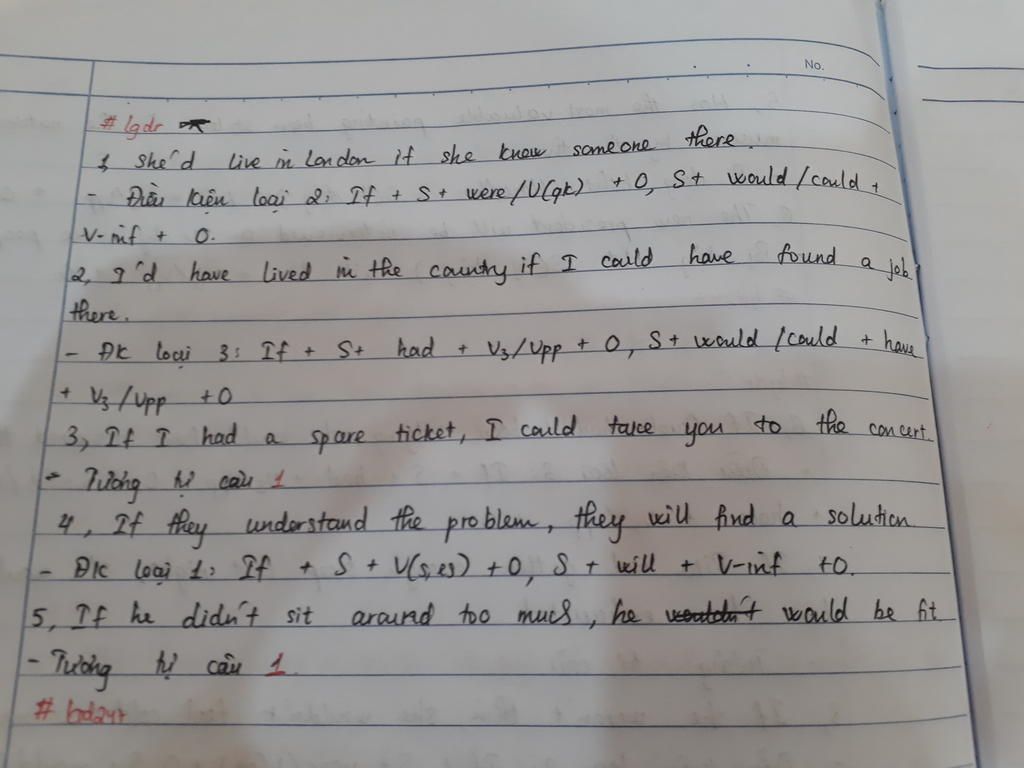 No.
# lgdr
1, She'd live in London if she knew someone there.
- Điều kiện loại 2: If + S + were/V(qk) + O, S + would/could +
V-inf + O.
2, I'd have lived in the country if I could have found a job
there.
- ĐK loại 3: If + S + had + V3/Vpp + O, S + would/could + have
+ V3/Vpp + O
3, If I had a spare ticket, I could take you to the concert.
- Tương tự câu 1
4, If they understand the problem, they will find a solution
- ĐK loại 1: If + S + V(s,es) + O, S + will + V-inf + O.
5, If he didn't sit around too much, he wouldn't would be fit
- Tương tự câu 1.
# bd24t